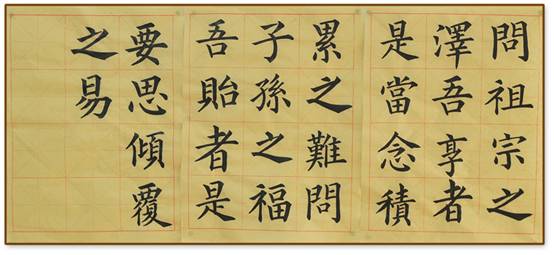 問祖宗之
澤吾享者
是當念積
累之難問
子孫之福
吾貽者是
要思傾覆
之易